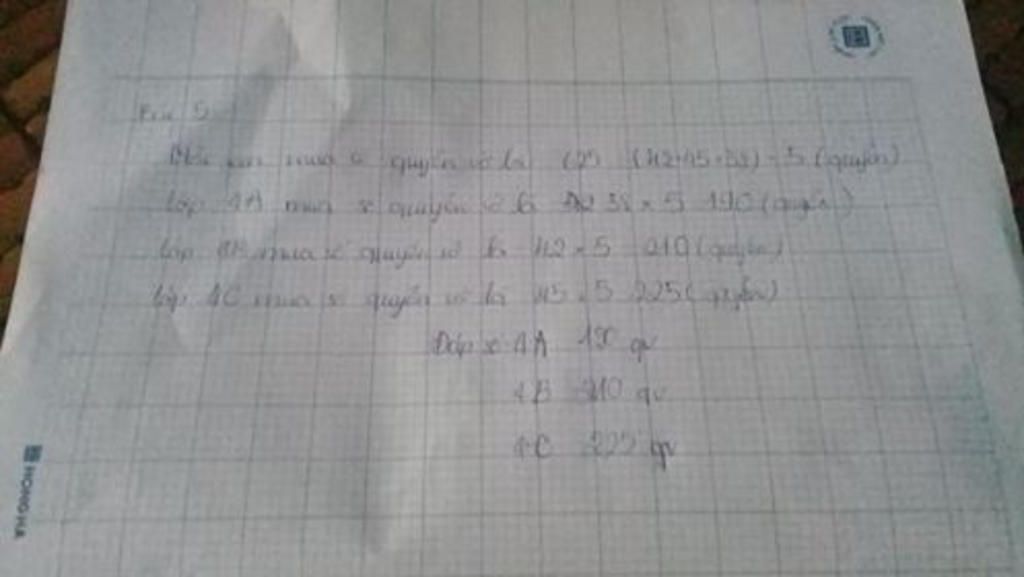 Bài 5
mua số quyển vở là (42+45+38) = 5 (quyển)
Lớp 4A mua số quyển vở là 38 × 5 190 (quyển)
Lớp 4B mua số quyển vở là 42 × 5 210 (quyển)
Lớp 4C mua số quyển vở là 45 × 5 225 (quyển)
Đáp số 4A 190 qv
4B 210 qv
4C 225 qv
HONG HA